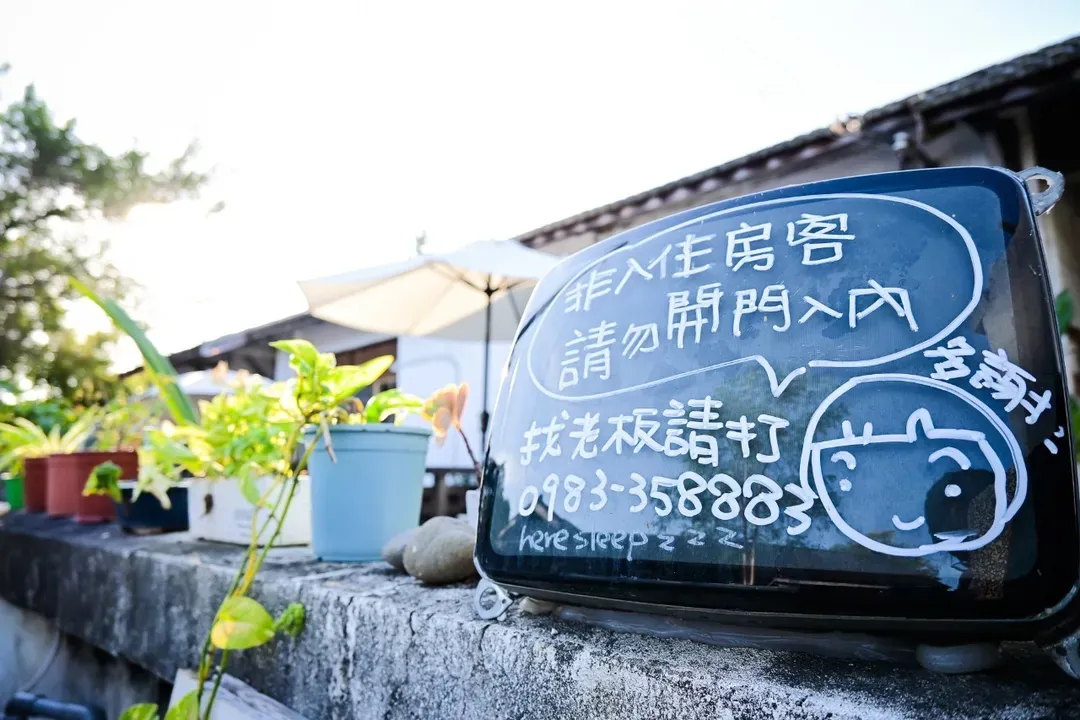 非入住房客
請勿開門入內
多謝!
找老板請打
0983-358883
here sleep z z z